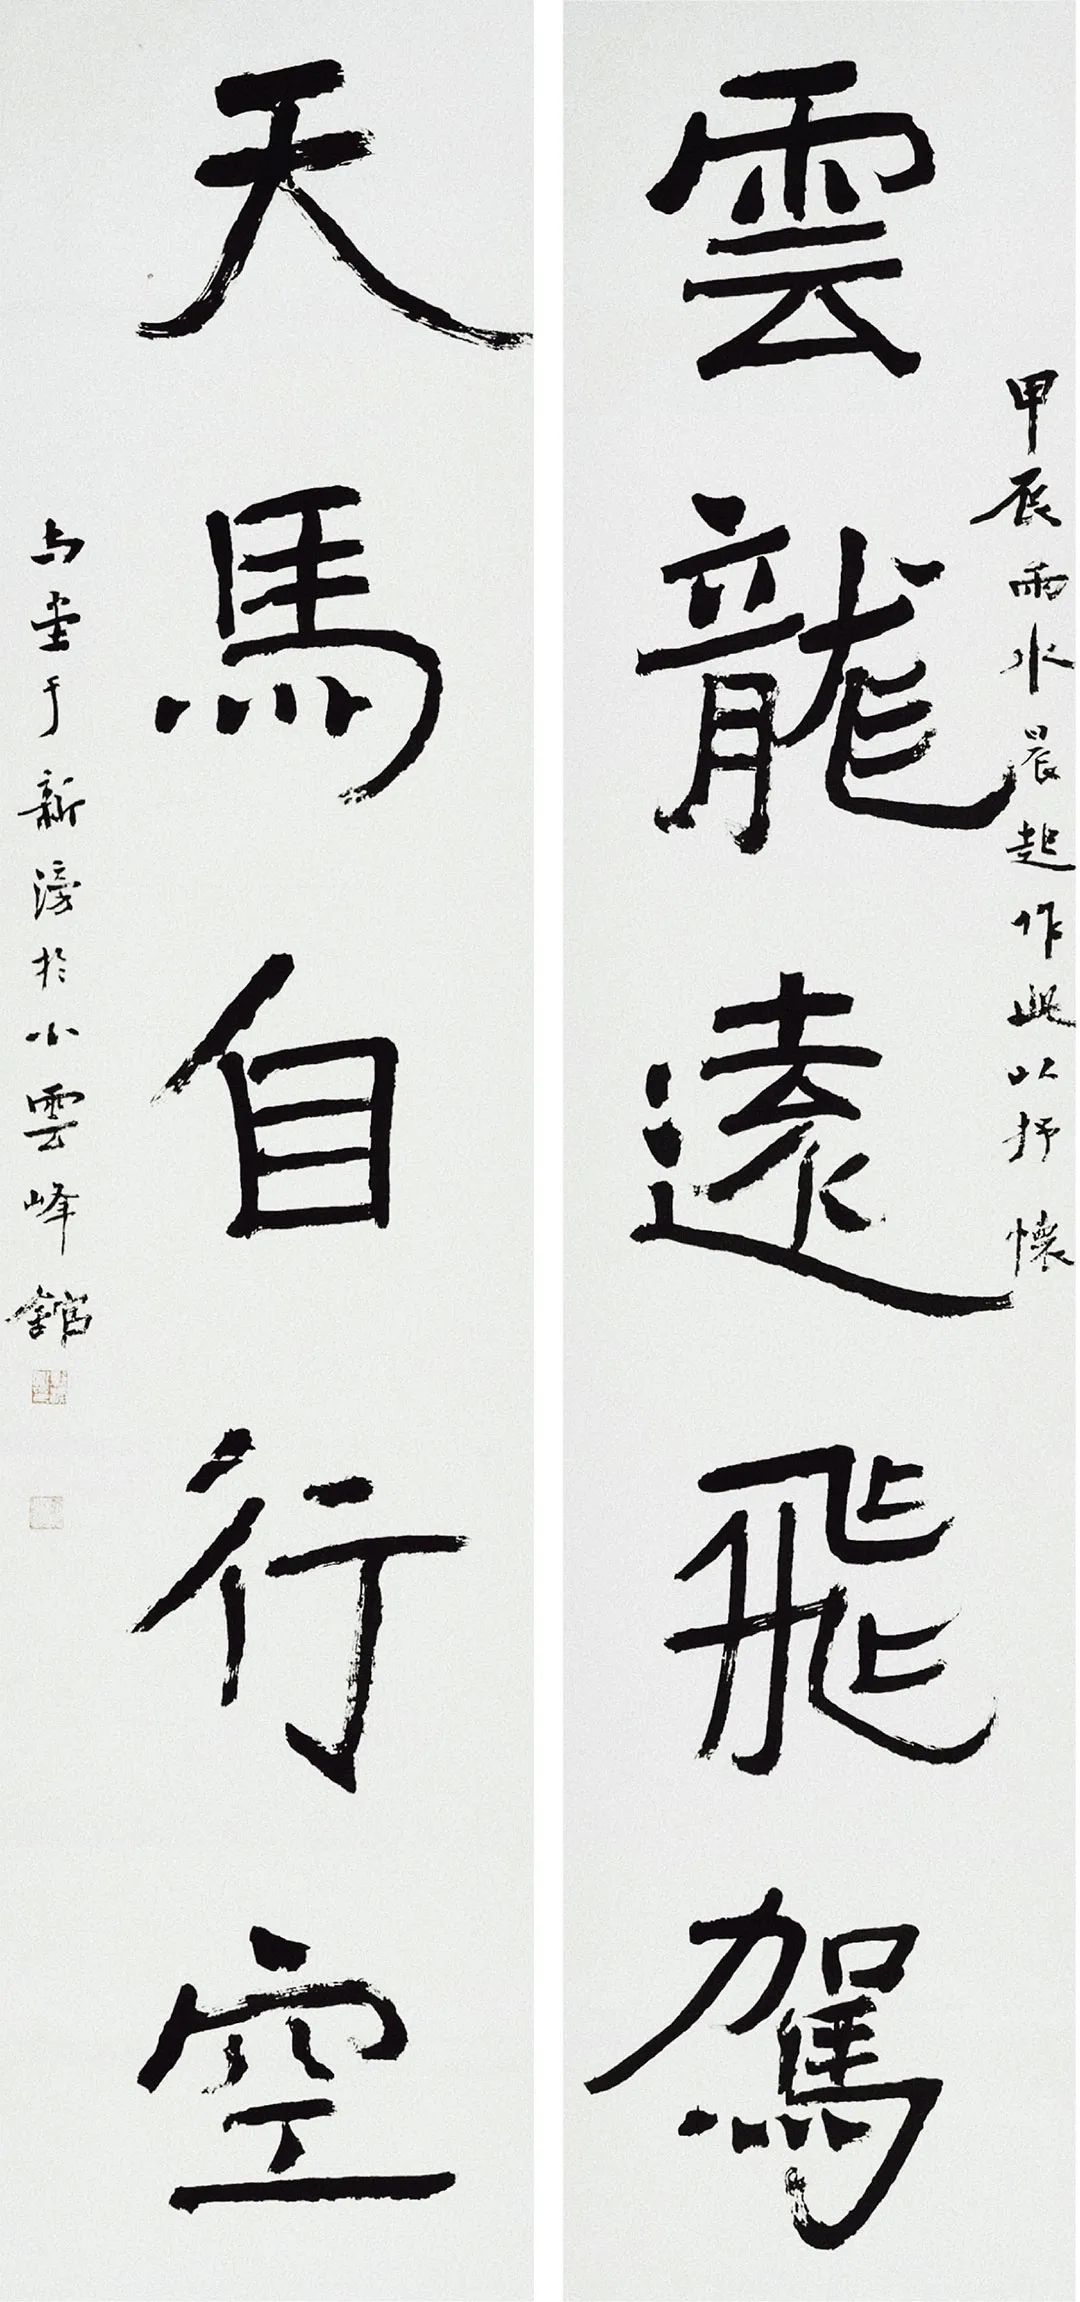 雲龍遠飛駕
甲辰雨水晨起作此以抒懷
天馬自行空
与堂于新滂於小雲峰館